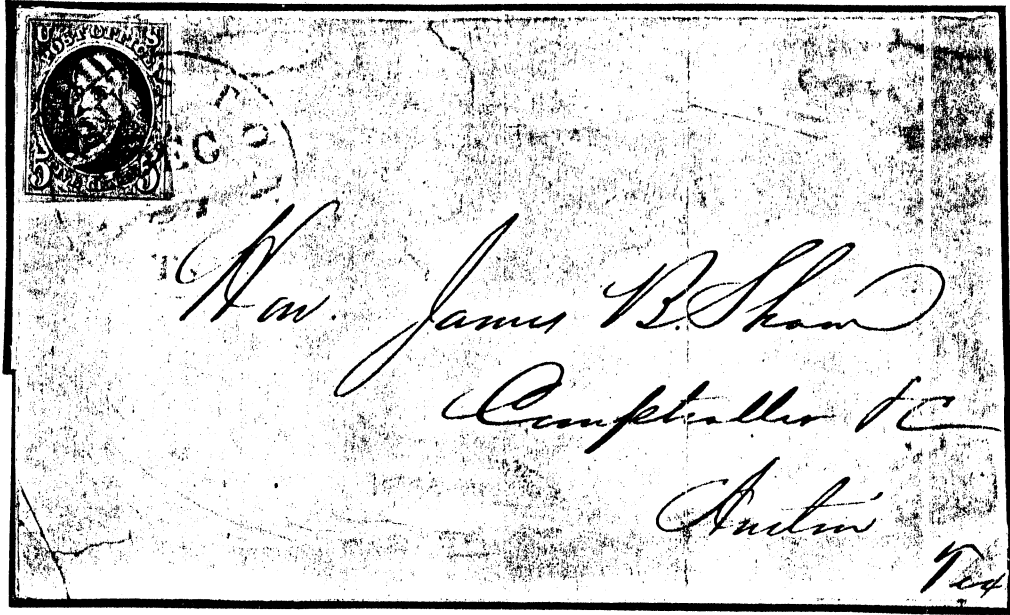 POST OFFICE
5 5
EC
Hon. James B. Shaw
Comptroller &C
Austin
Tex